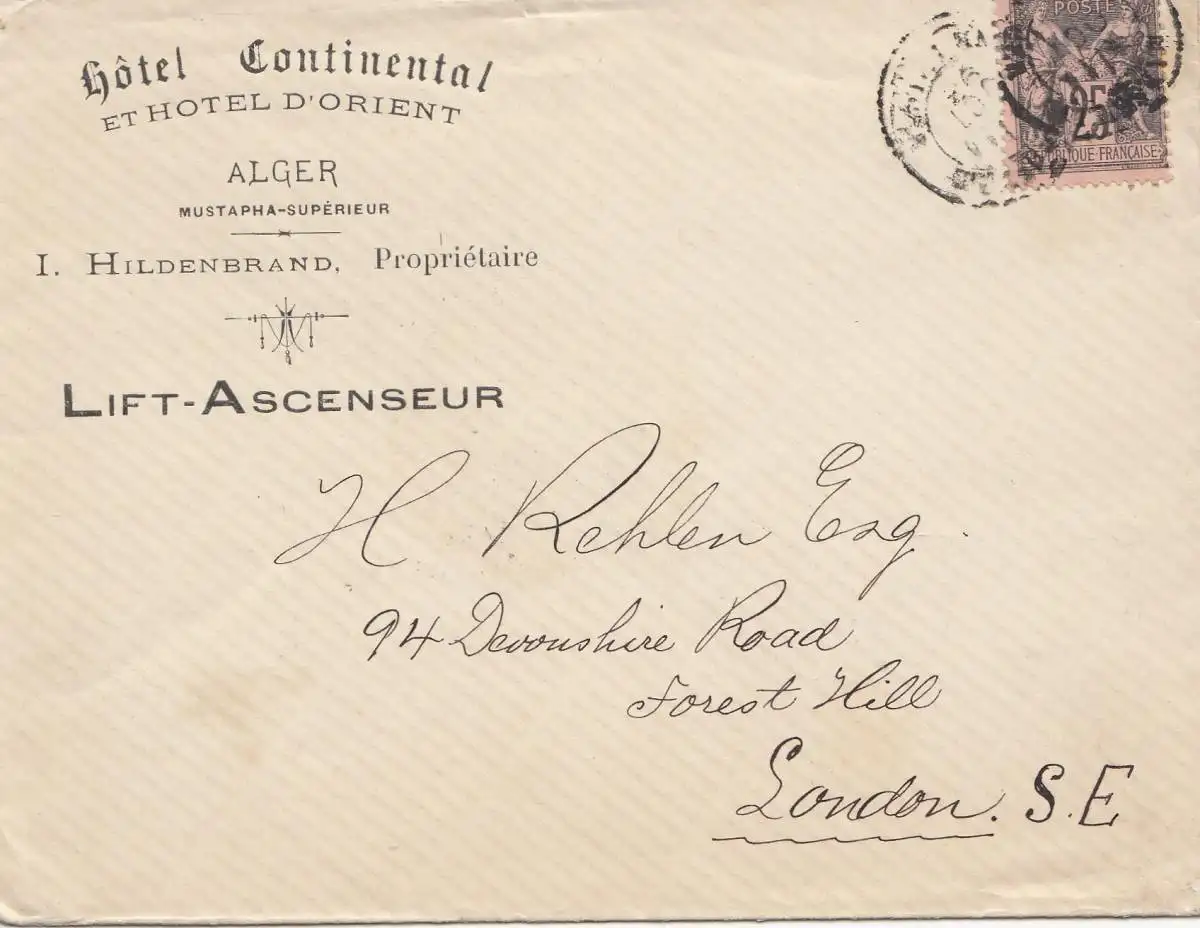 Hôtel Continental
ET HOTEL D'ORIENT
ALGER
MUSTAPHA-SUPÉRIEUR
I. HILDENBRAND, Propriétaire
LIFT-ASCENSEUR
POSTE
25
RÉPUBLIQUE FRANÇAISE
H Rehlen Esq.
94 Devonshire Road
Forest Hill
London. S.E